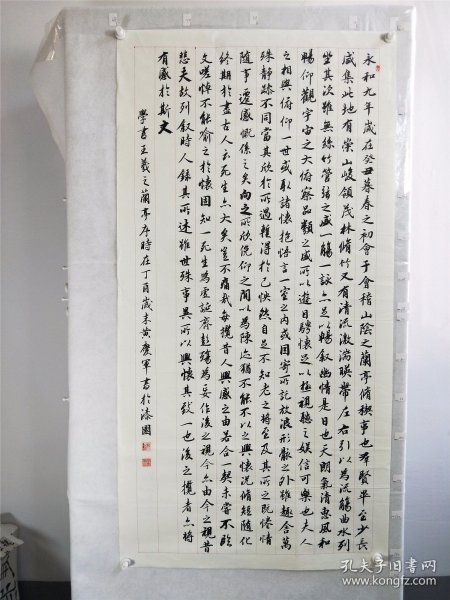 永和九年歲在癸丑暮春之初會于會稽山陰之蘭亭脩稧事也群賢畢至少長
咸集此地有崇山峻領茂林脩竹又有清流激湍暎帶左右引以為流觴曲水列
坐其次雖無絲竹管弦之盛一觴一詠亦足以暢敘幽情是日也天朗氣清惠風和
暢仰觀宇宙之大俯察品類之盛所以遊目騁懷足以極視聽之娛信可樂也夫人
之相與俯仰一世或取諸懷抱悟言一室之內或因寄所託放浪形骸之外雖趣舍萬
殊靜躁不同當其欣於所遇暫得於己怏然自足不知老之將至及其所之既惓情
隨事遷感慨係之矣向之所欣俛仰之間以為陳迹猶不能不以之興懷況脩短隨化
終期於盡古人云死生亦大矣豈不痛哉每攬昔人興感之由若合一契未嘗不臨
文嗟悼不能喻之於懷固知一死生為虛誕齊彭殤為妄作後之視今亦由今之視昔
悲夫故列敘時人錄其所述雖世殊事異所以興懷其致一也後之攬者亦將
有感於斯文
學書王羲之蘭亭序時在丁酉歲末黃慶軍書於漆園
孔夫子旧书网
www.kongfz.com